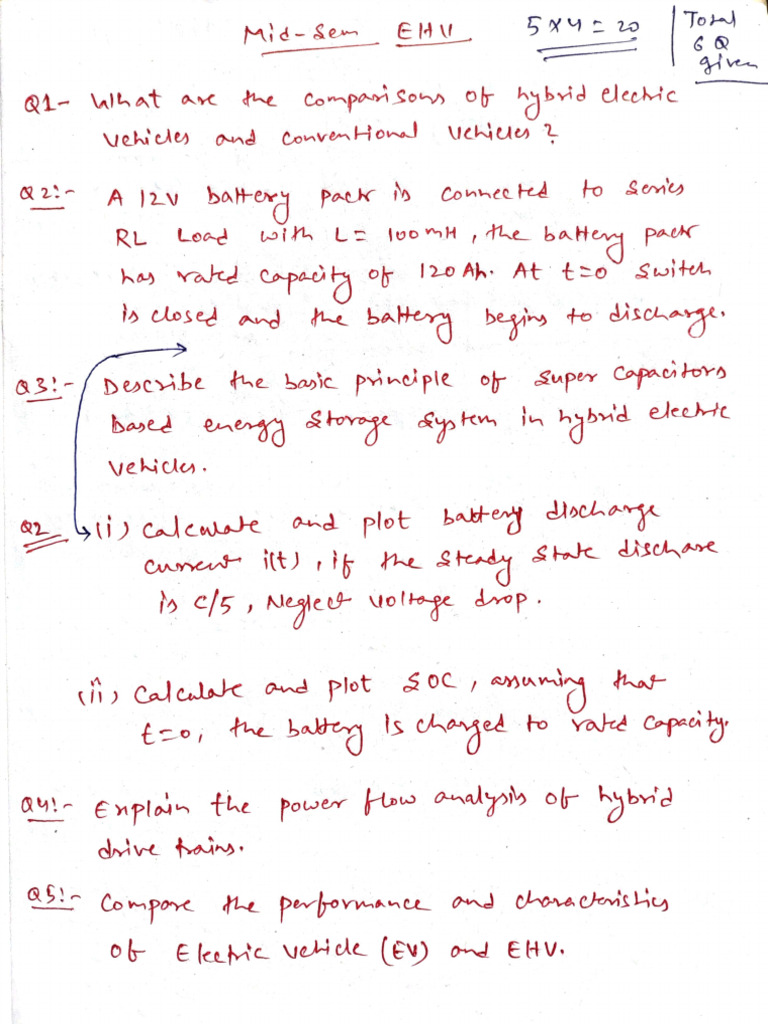 Mid-Sem EHV 5x4=20 Total
6 Q
given
Q1- What are the comparisons of hybrid electric
vehicles and conventional vehicles?
Q2:- A 12V battery pack is connected to series
RL Load with L = 100mH, the battery pack
has rated capacity of 120Ah. At t=0 switch
is closed and the battery begins to discharge.
Q3:- Describe the basic principle of super capacitors
based energy storage system in hybrid electric
vehicles.
Q2 (i) Calculate and plot battery discharge
current i(t), if the steady state dischare
is C/5, Neglect voltage drop.
(ii) Calculate and plot SOC, assuming that
t=0, the battery is charged to rated capacity.
Q4:- Explain the power flow analysis of hybrid
drive trains.
Q5:- Compare the performance and characteristics
of Electric vehicle (EV) and EHV.